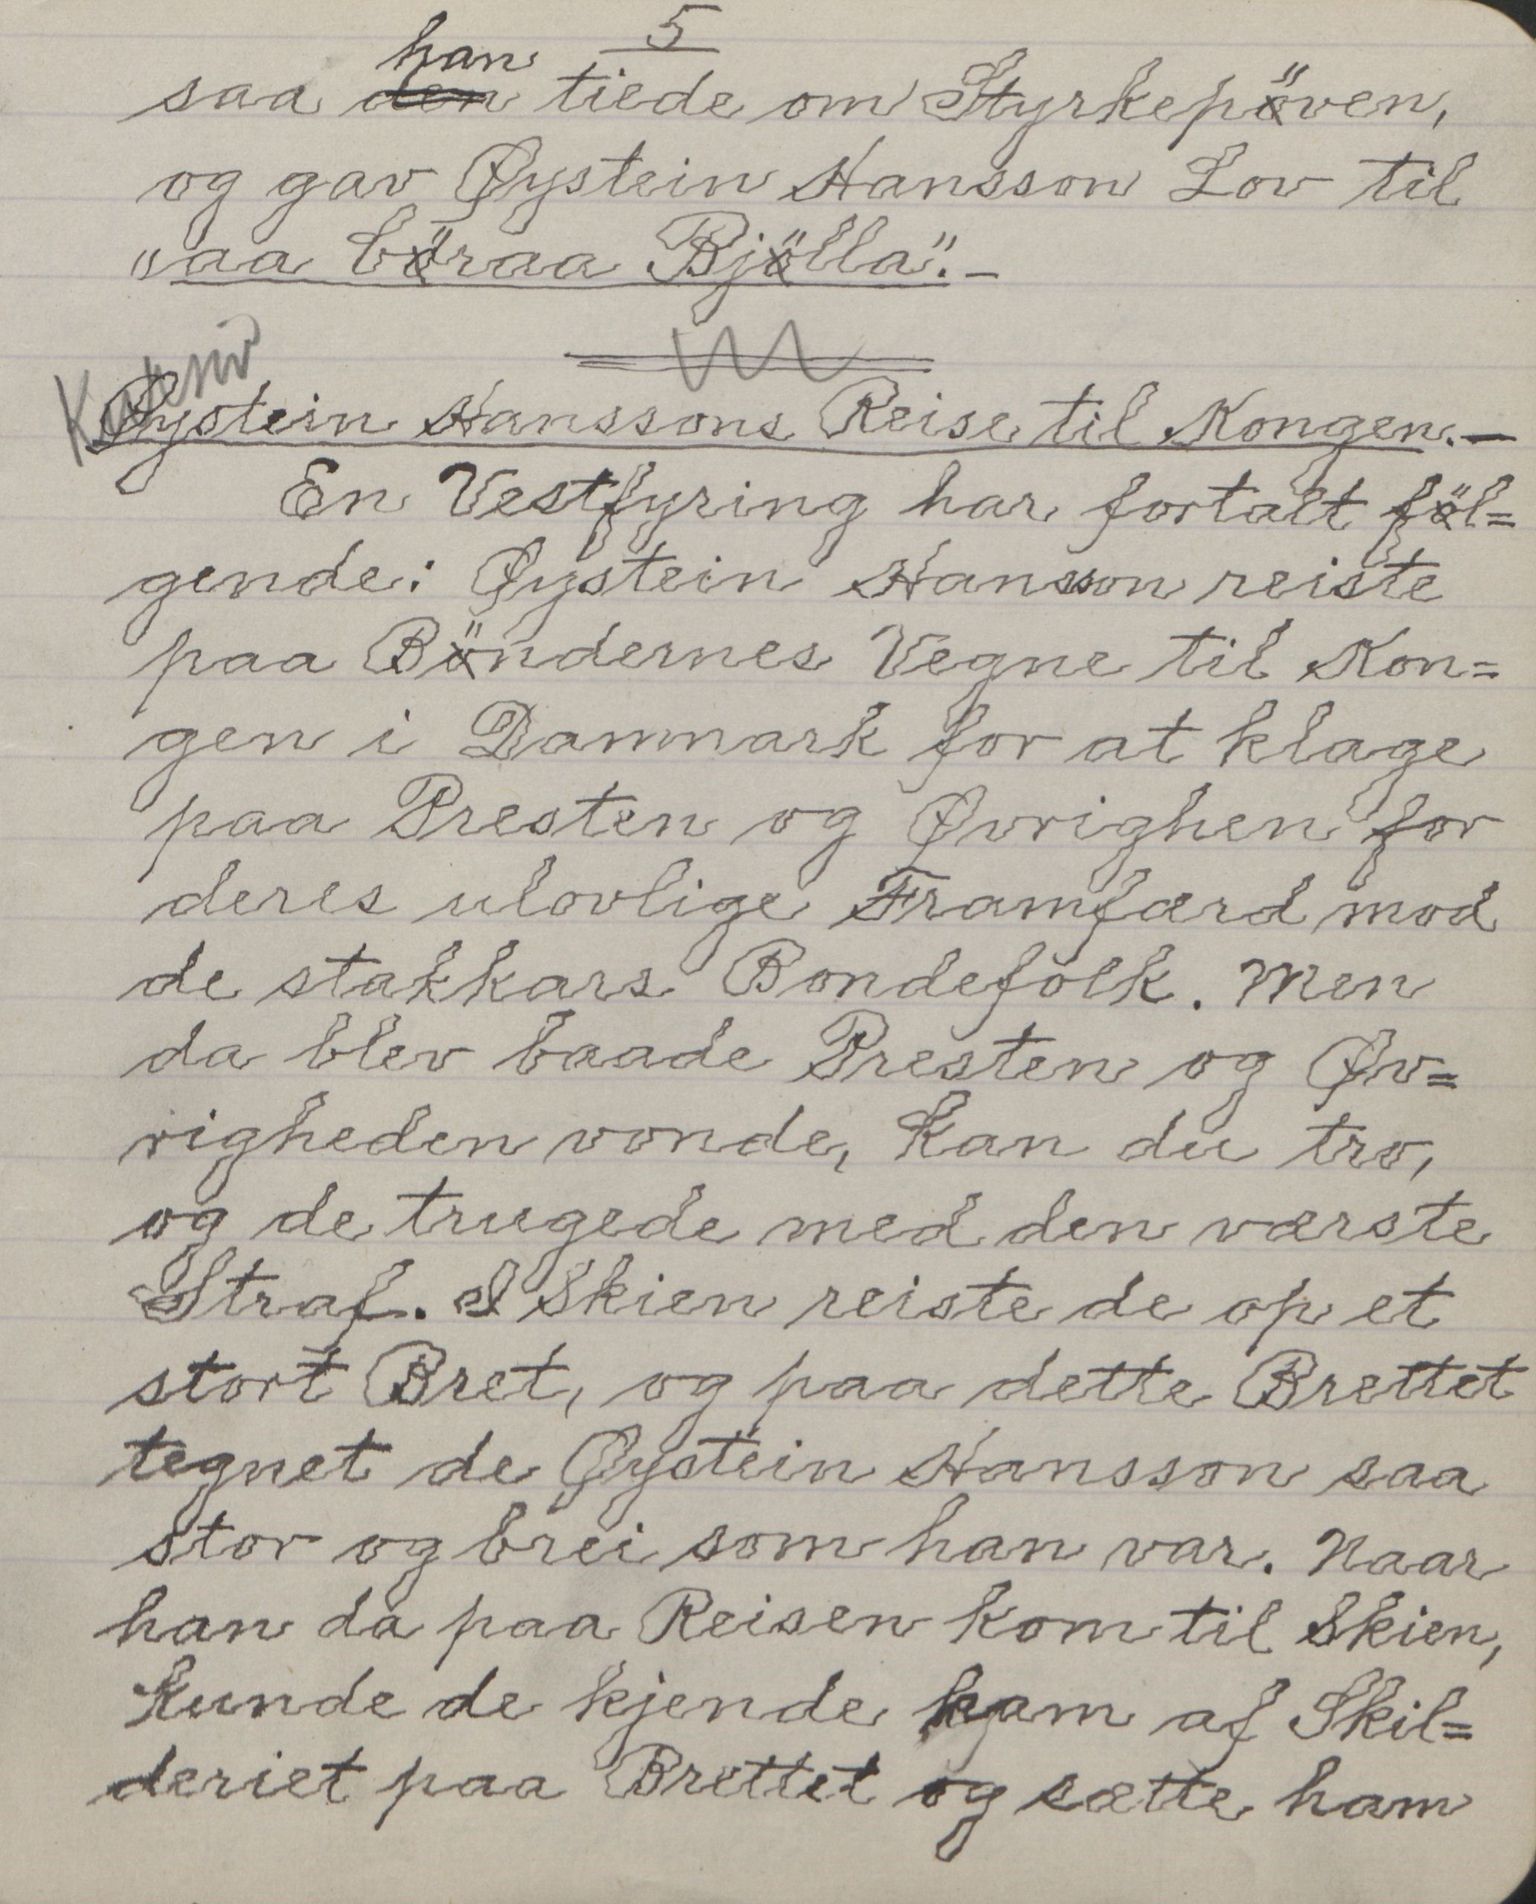 5
saa han tiede om Styrkepöven,
og gav Øystein Hansson Lov til
"aa böraa Bjölla".-
Øystein Hanssons Reise til Kongen.-
En Vestfyring har fortalt föl=
gende: Øystein Hansson reiste
paa Böndernes Vegne til Kon=
gen i Danmark for at klage
paa Presten og Øvrighen for
deres ulovlige Framfærd mod
de stakkars Bondefolk. Men
da blev baade Presten og Øv=
righeden vonde, kan du tro,
og de trugede med den værste
Straf. I Skien reiste de op et
stort Bret, og paa dette Brettet
tegnet de Øystein Hansson saa
stor og brei som han var. Naar
han da paa Reisen kom til Skien,
kunde de kjende ham af Skil=
deriet paa Brettet og sætte ham